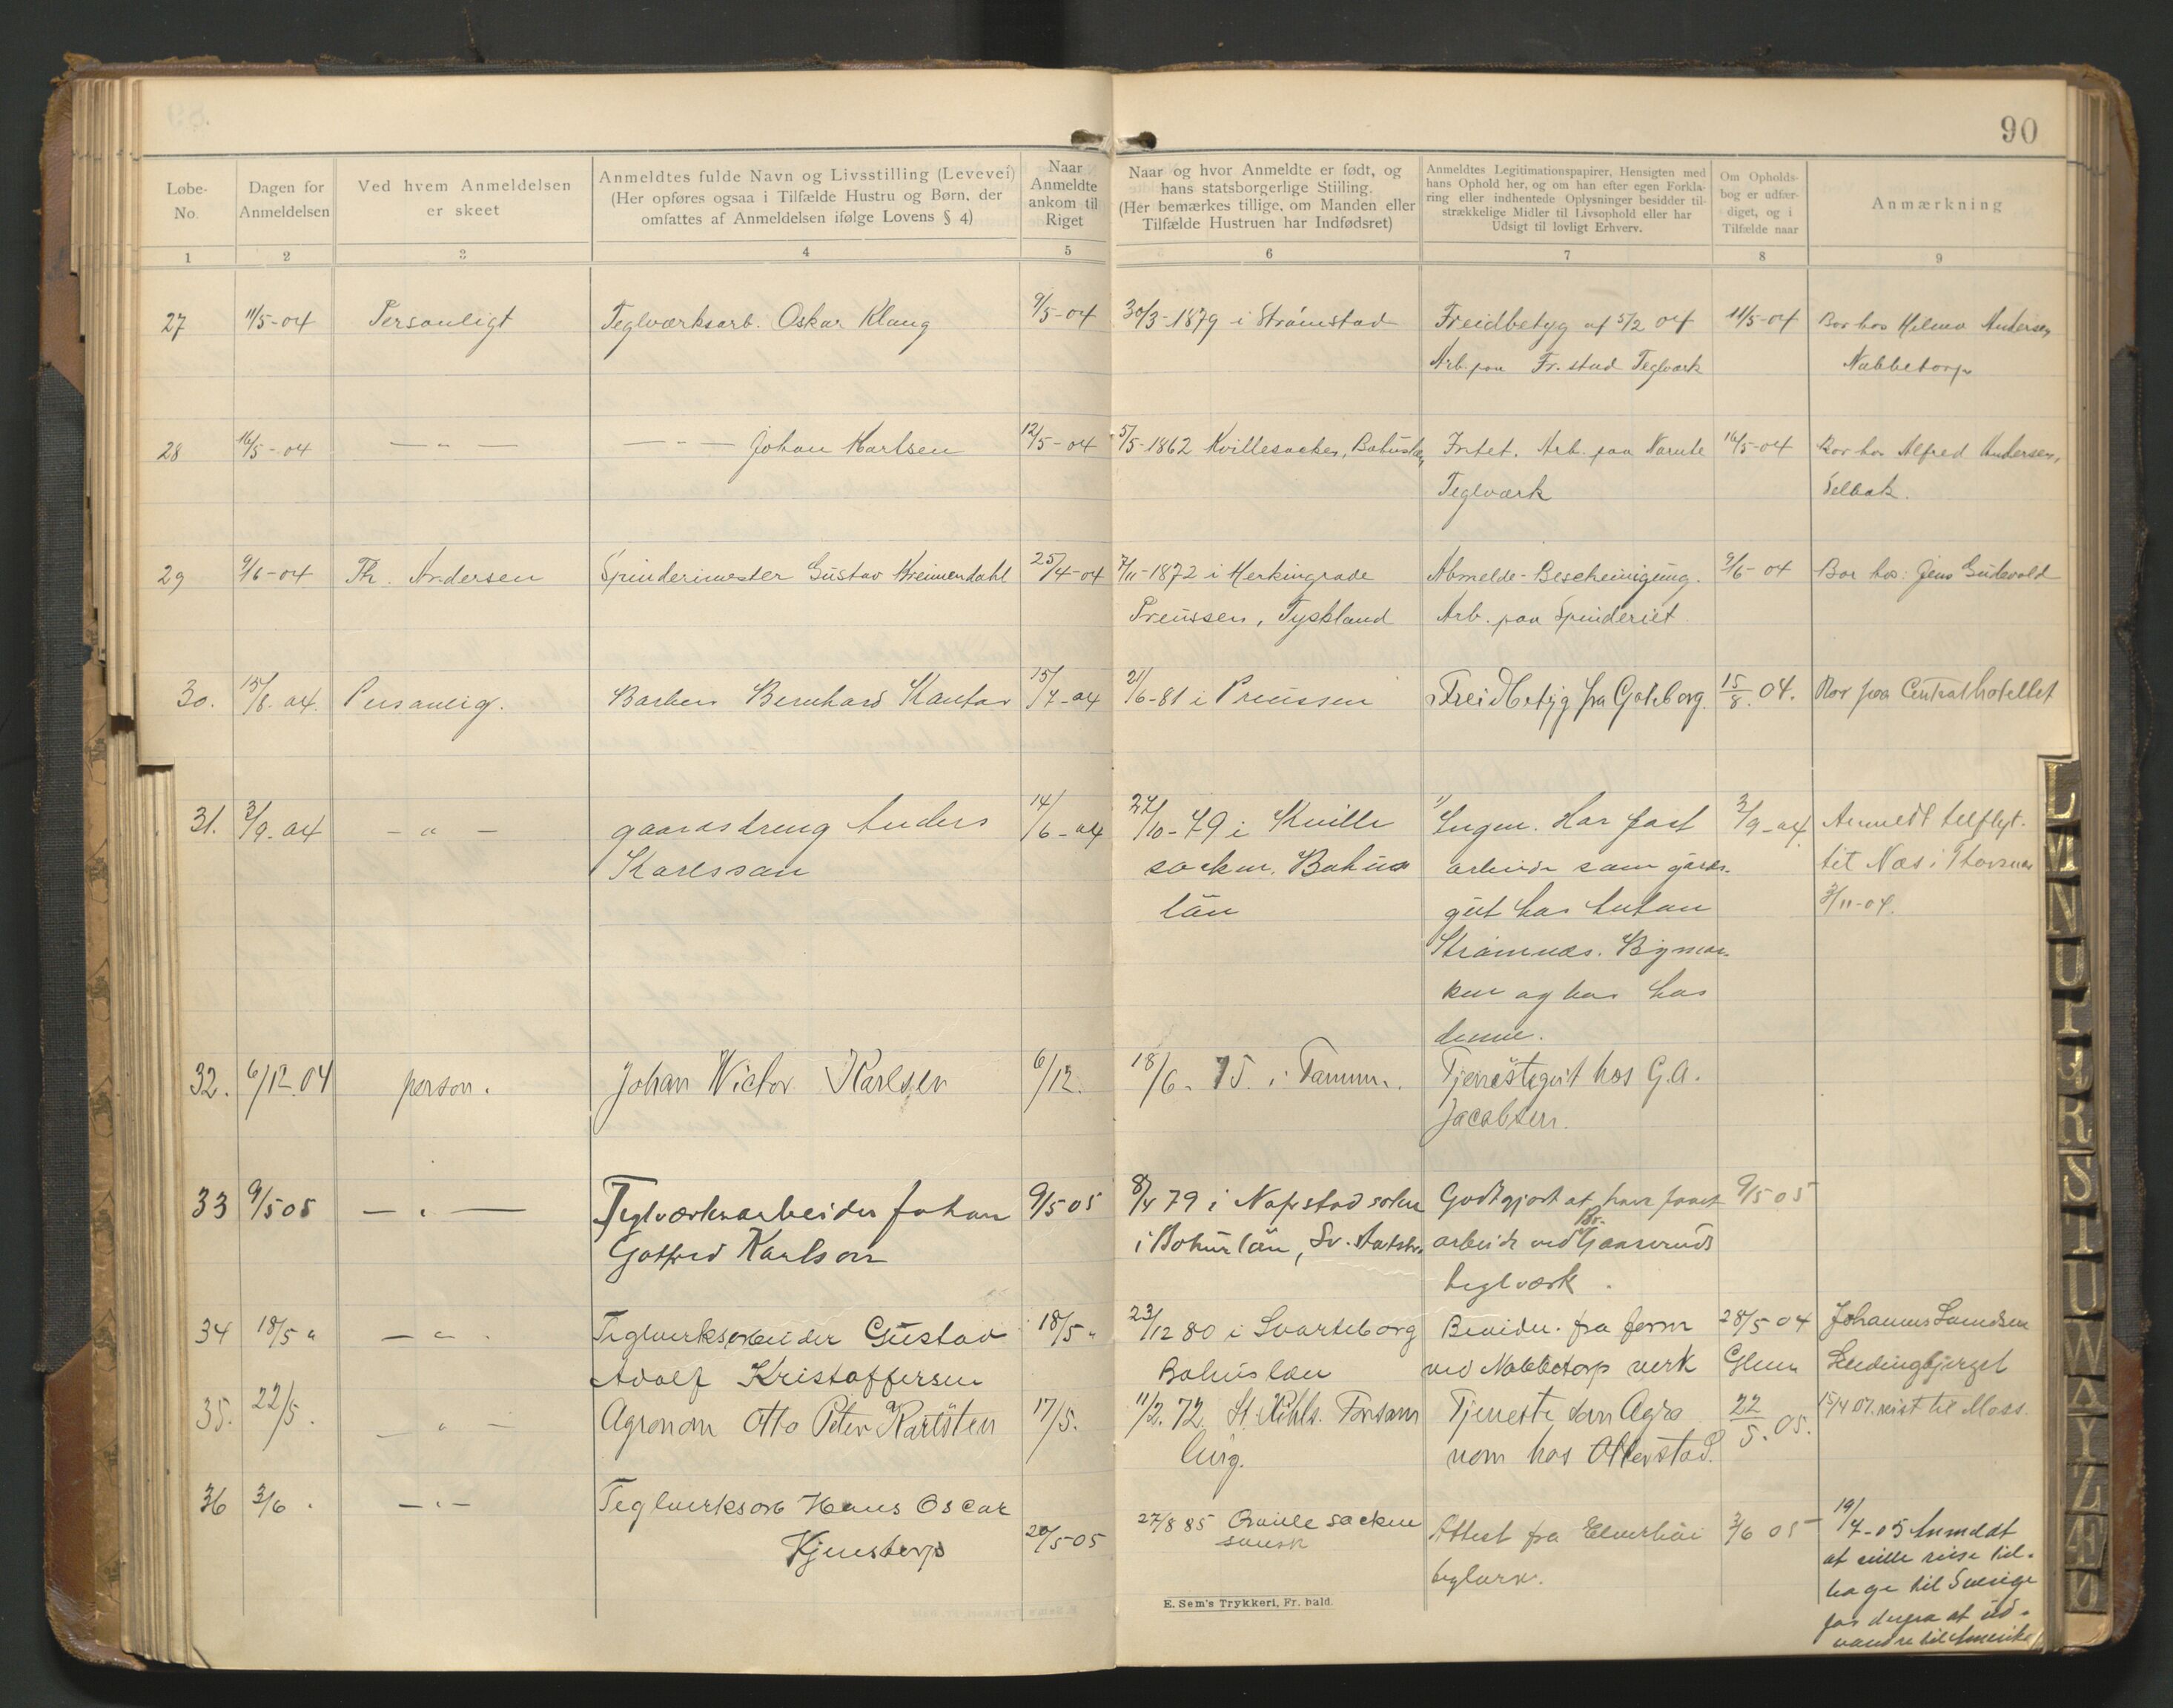 90
Løbe-No.
Dagen for Anmeldelsen
Ved hvem Anmeldelsen er skeet
Anmeldtes fulde Navn og Livsstilling (Levevei)
(Her opføres ogsaa i Tilfælde Hustru og Børn, der
omfattes af Anmeldelsen ifølge Lovens § 4)
Naar Anmeldte ankom til Riget
Naar og hvor Anmeldte er født, og
hans statsborgerlige Stilling.
(Her bemærkes tillige, om Manden eller
Tilfælde Hustruen har Indfødsret)
Anmeldtes Legitimationspapirer, Hensigten med
hans Ophold her, og om han efter egen Forkla-
ring eller indhentede Oplysninger besidder til-
strækkelige Midler til Livsophold eller har
Udsigt til lovligt Erhverv.
Om Opholds-
bog er udfær-
diget, og i
Tilfælde naar
Anmærkning
1 2 3 4 5 6 7 8 9
27 11/5-04 Personligt Teglværksarb. Oskar Klang 9/5-04 30/3-1879 i Strömstad Freidbetyg af 5/2 04 11/5-04 Bor hos Helmer Andersen
Arb. paa Fr.stad Teglværk Nabbetorp
28 16/5-04 — " — — " — Johan Karlsen 12/5-04 5/5-1862 Kvillesocken, Bohuslän Intet. Arb. paa Narnte 16/5-04 Bor hos Alfred Andersen,
Teglværk Selbak.
29 9/6-04 Th. Andersen Spinderimester Gustav Kreimendahl 25/4-04 7/11-1872 i Merkingrade Abmelde-Bescheinigung. 9/6-04 Bor hos: Jens Gudevold
Preussen, Tyskland Arb. paa Spinderiet
30. 15/8.04. Personlig. Barber Bernhard Kantor 15/7-04 21/6-81 i Preussen Freidbetyg fra Gøteborg. 15/8.04. Bor paa Centralhotellet
31. 3/9.04 — " — gaardsdreng Anders 14/6-04 24/10-79 i Kville Ingen. Har fast 3/9-04. Anmeldt tilflyt.
Karlsson socken. Bohus arbeide som gaards- tit Næs i Thorsnæs
län gut hos Anton 3/11-04.
Strømnæs. Bymar-
ken og bor hos
denne.
32. 6/12.04 person. Johan Victor Karlsen 6/12. 18/6-75. i Tanum. Tjenestegut hos G.A.
Jacobsen.
33 9/5 05 — " — Teglværksarbeider Johan 9/5 05 8/4 79 i Nafvstad sokn Godtgjort at have faaet 9/5 05
Gotfred Karlson i Bohus län, Sv. statsb. arbeide ved Gaaserøds
teglværk.
34 18/5 " — " — Teglverksarbeider Gustav 18/5 " 23/12 80 i Svarteborg Bevidn. fra form 28/5 04 Johannes Lundsen
Adolf Kristoffersen Bohuslän ved Nabbetorp verk
35. 22/5. — " — Agronom Otto Peter Karlsten 17/5. 11/2.72. Forsam Tjeneste som Agro 22/5.05. 15/4 07. reist til Moss.
ling. nom hos Otterstad.
36 3/6. — " — Teglverksarb Hans Oscar
Kjenstorp 20/5-05 27/8 85 Qville socken Attest fra Elverhöi 3/6 05 19/7-05 Anmeldt
svensk teglverk. at ville reise til-
bage til Sverige
for derfra at ud-
vandre til Amerika
E. Sem's Trykkeri, Fr. hald.
L M N O P R S T U W Y Z Æ Ø